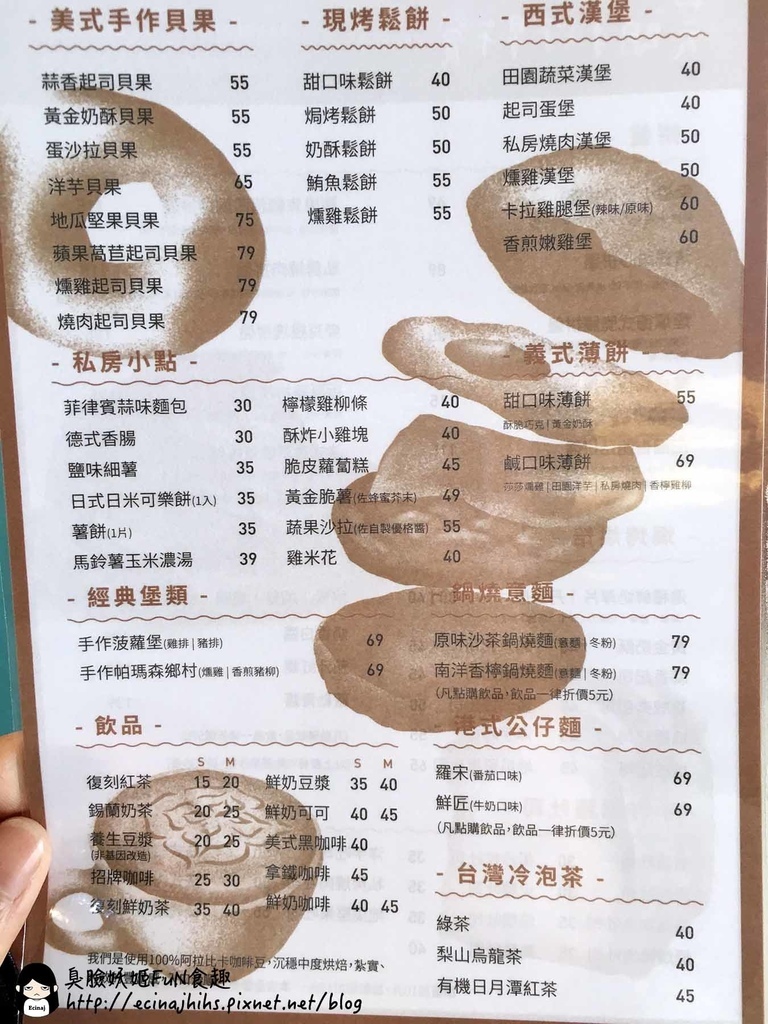 - 美式手作貝果 -
蒜香起司貝果 55
黃金奶酥貝果 55
蛋沙拉貝果 55
洋芋貝果 65
地瓜堅果貝果 75
蘋果萵苣起司貝果 79
燻雞起司貝果 79
燒肉起司貝果 79
- 現烤鬆餅 -
甜口味鬆餅 40
焗烤鬆餅 50
奶酥鬆餅 50
鮪魚鬆餅 55
燻雞鬆餅 55
- 西式漢堡 -
田園蔬菜漢堡 40
起司蛋堡 40
私房燒肉漢堡 50
燻雞漢堡 50
卡拉雞腿堡(辣味/原味) 60
香煎嫩雞堡 60
- 私房小點 -
菲律賓蒜味麵包 30
德式香腸 30
鹽味細薯 35
日式日米可樂餅(1入) 35
薯餅(1片) 35
馬鈴薯玉米濃湯 39
檸檬雞柳條 40
酥炸小雞塊 40
脆皮蘿蔔糕 45
黃金脆薯(佐蜂蜜芥末) 49
蔬果沙拉(佐自製優格醬) 55
雞米花 40
- 義式薄餅 -
甜口味薄餅 55
酥脆巧克 | 黃金奶酥
鹹口味薄餅 69
莎莎燻雞 | 田園洋芋 | 私房燒肉 | 香檸雞柳
- 經典堡類 -
手作菠蘿堡(雞排 | 豬排) 69
手作帕瑪森鄉村(燻雞 | 香煎豬柳) 69
- 鍋燒意麵 -
原味沙茶鍋燒麵(意麵 | 冬粉) 79
南洋香檸鍋燒麵(意麵 | 冬粉) 79
(凡點購飲品,飲品一律折價5元)
- 飲品 -
S M
復刻紅茶 15 20
錫蘭奶茶 20 25
養生豆漿 20 25
(非基因改造)
招牌咖啡 25 30
復刻鮮奶茶 35 40
S M
鮮奶豆漿 35 40
鮮奶可可 40 45
美式黑咖啡 40
拿鐵咖啡 45
鮮奶咖啡 40 45
我們是使用100%阿拉比卡咖啡豆,沉穩中度烘焙,紮實、
- 港式公仔麵 -
羅宋(番茄口味) 69
鮮匠(牛奶口味) 69
(凡點購飲品,飲品一律折價5元)
- 台灣冷泡茶 -
綠茶 40
梨山烏龍茶 40
有機日月潭紅茶 45
Ecinaj
臭臉好姬FuN食趣
http://ecinajhihs.pixnet.net/blog